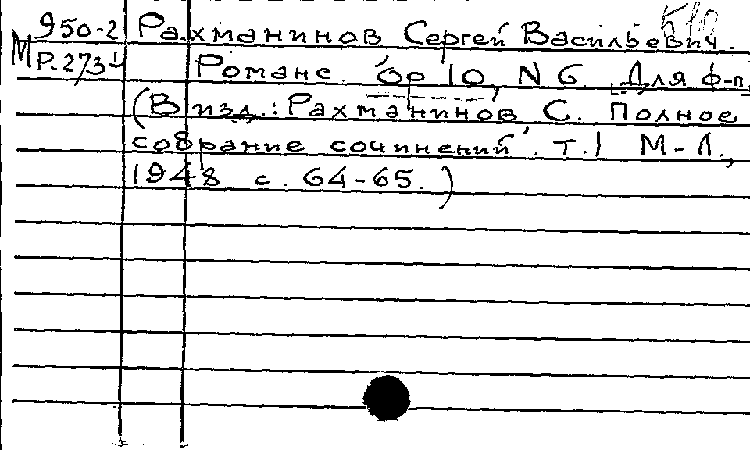 М 950-2 Рахманинов Сергей Васильевич.
Р-273 Романс. ор 10, N 6. Для ф-п
(В изд.: Рахманинов С. Полное
собрание сочинений. т.1 М-Л.,
1948 с. 64-65.)